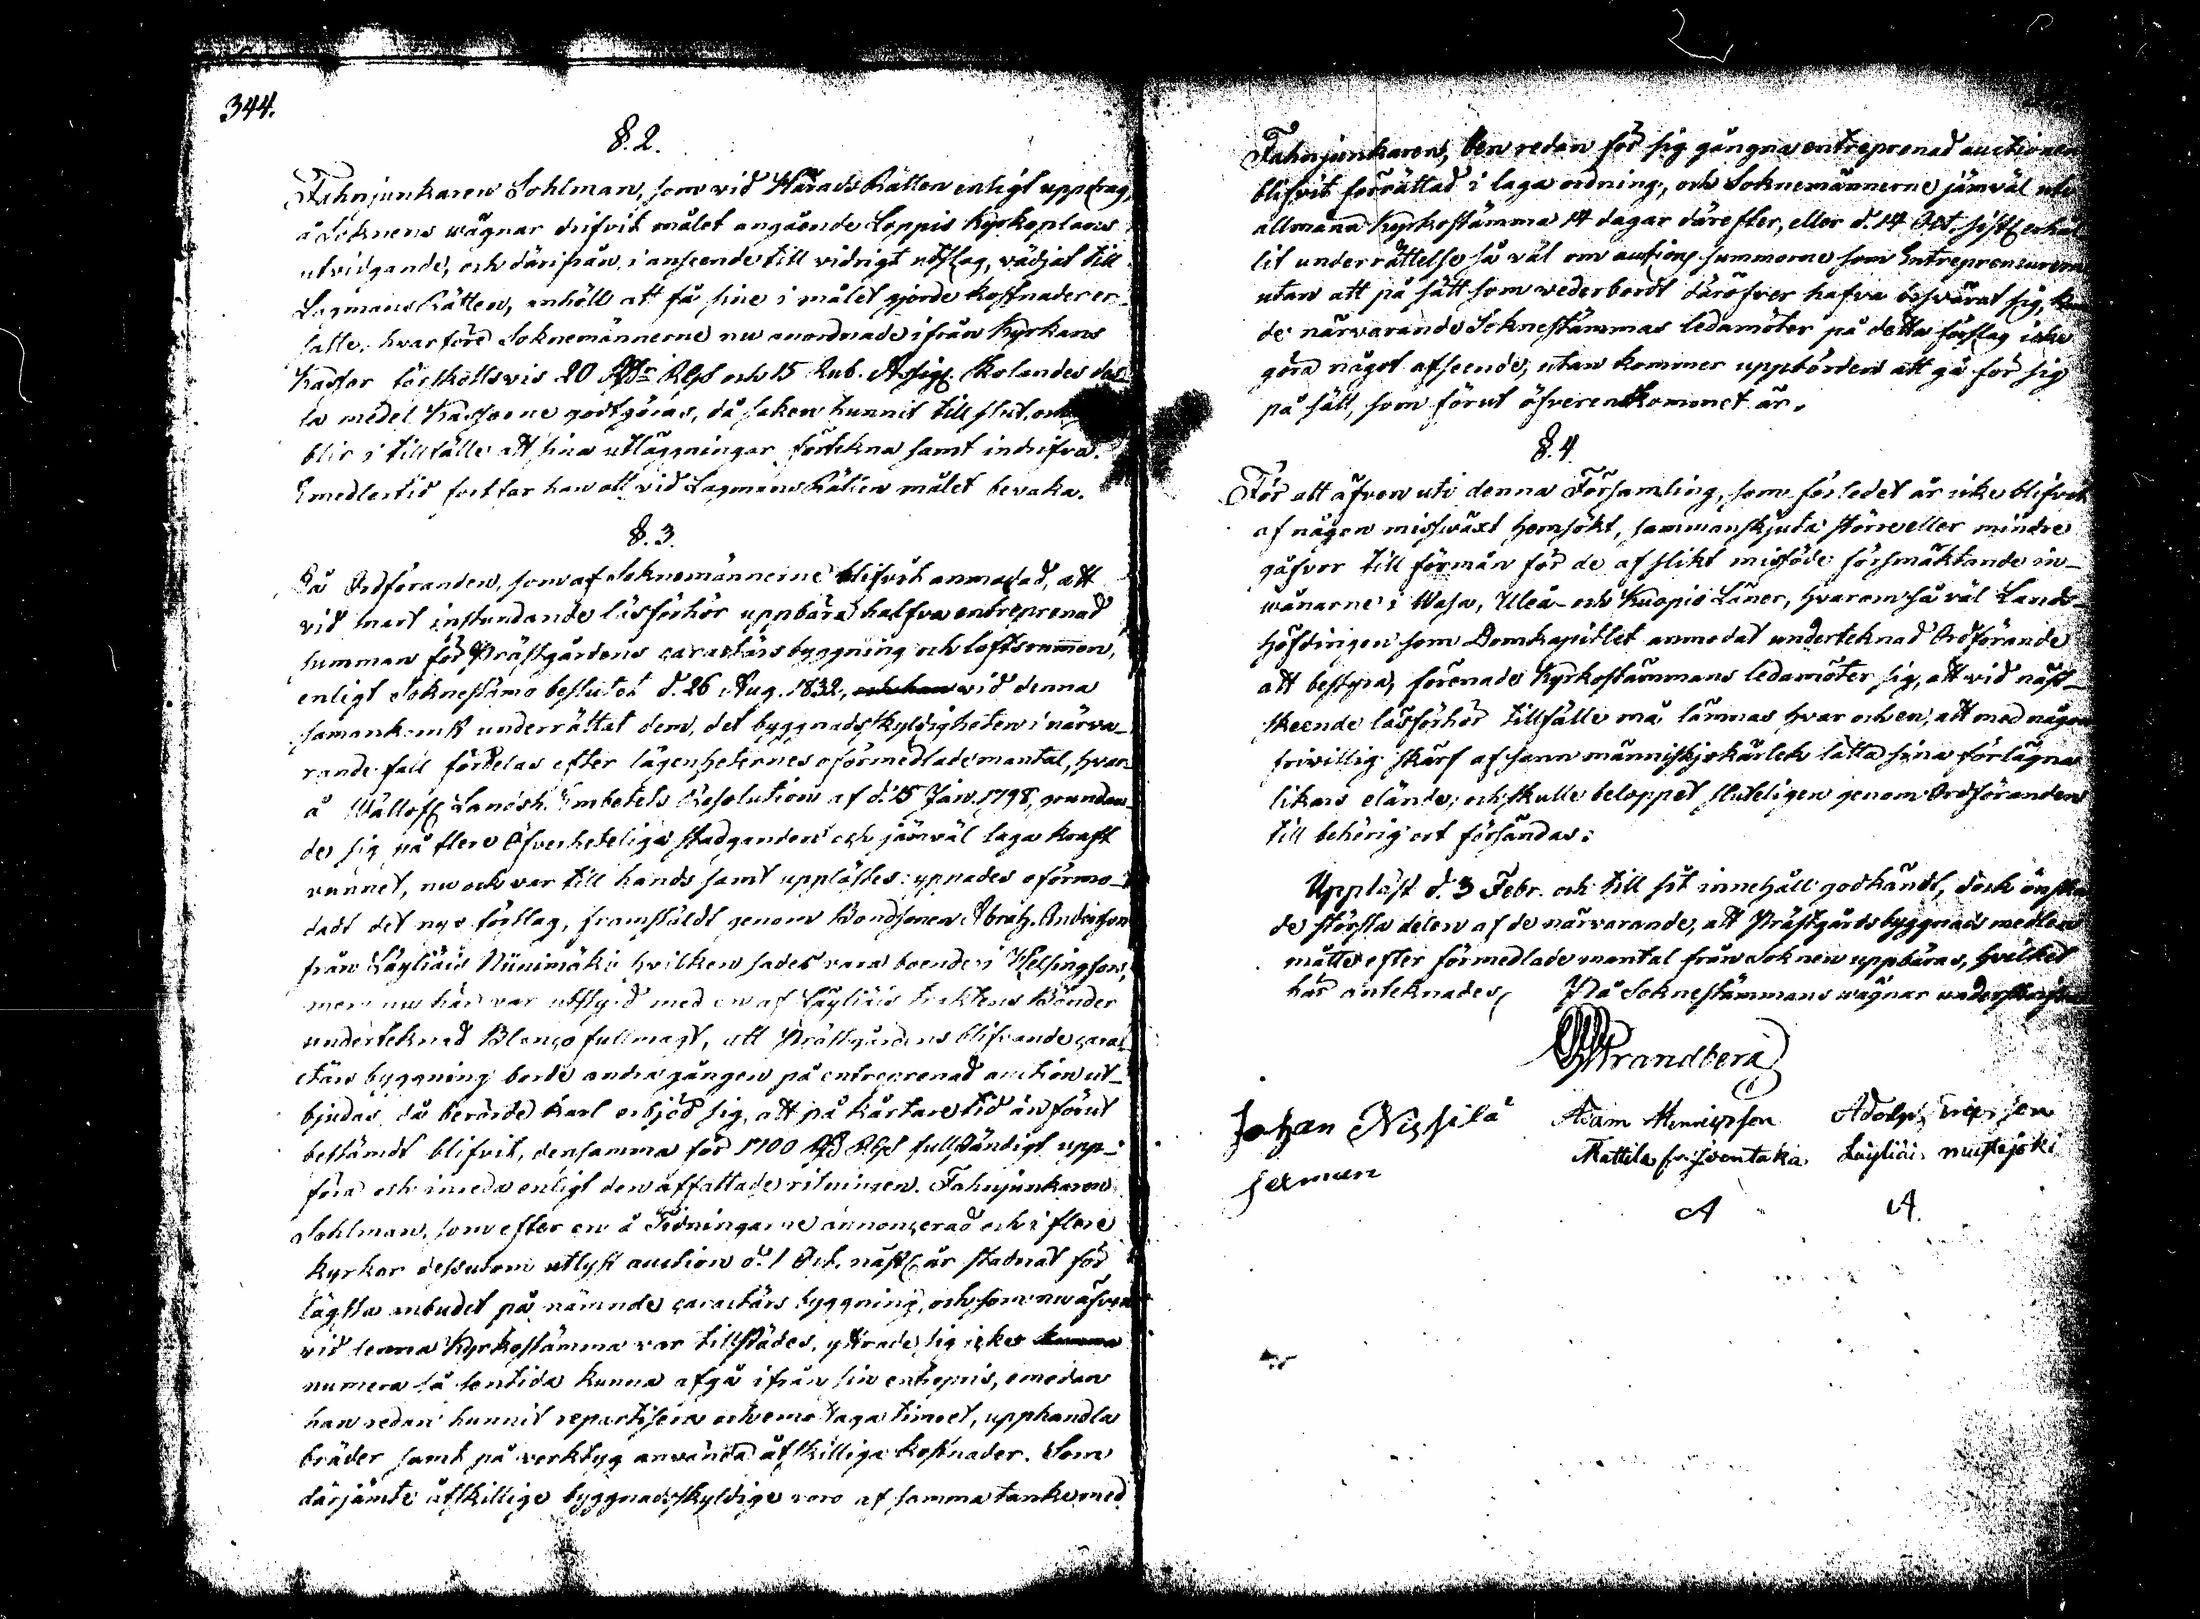 344.
§. 2.
Fahnjunkaren Sohlman, som vid Härads Rätten enligt uppdrag,
å Soknens wägnar drifvit målet angående Loppis Kyrkoplans
utvidgande, och därifrån, i anseende till vidrigt utslag, vädjat till
Lagmans Rätten, anhöll att få sine i målet gjorde kostnader er-
satte; hvarföre Soknemännerne nu anordnade ifrån Kyrkans
Kassor förskottsvis 20 RDr RGs och 15 Rub. Assign. Skolandes des-
sa medel Kassorne godtgöras, då saken hunnit till slut, och
blir i tillfälle att sina utläggningar förtekna samt indrifva.
Emedlertid fortfar han att vid Lagmans Rätten målet bevaka.
§. 3.
Då Ordföranden, som af Soknemännerne blifvit anmodad, att
vid snart instundande läsförhör uppbära halfva entreprenad
summan för Prästgårdens caractärsbyggning och loftsrummen,
enligt Soknestämo beslutet d. 26 Aug. 1832, vid denna
samankomst underrättat dem, det byggnadsskyldigheten i närva-
rande fall fördelas efter lägenheternes oförmedlade mantal, hvar-
å Wällofl. Landsh. Embetets Resolution af d. 15 Jan. 1798, grundan-
des sig på flere Öfverheteliga stadganden och jämväl laga kraft
vunnet, nu ock var till hands samt upplästes: ypnades oförmo-
dadt det nya förslag, framstäldt genom Bondsonen Abrah. Andersson
från Läyliäis Niinimäki hvilken sades vara boende i Helsingfors,
men nu här var utstyrd med en af Läyliäis traktens Bönder
underteknad Blanco fullmagt, att Prästgårdens blifvande carac-
tärs byggning borde andra gången på entreprenad auction ut-
bjudas, då berörde karl erbjöd sig, att på kårtare tid än förut
bestämdt blifvit, densamma för 1700 RD RGs fullständigt upp-
föra och inreda enligt den affattade ritningen. Fahnjunkaren
Sohlman, som efter en å Tidningarne annoncerad och i flere
kyrkor dessutom utlyst auction d. 1 Oct. nästl. år stadnat för
lägsta anbudet på nämnde caractärs byggning, och som nu äfven
vid denna Kyrkostämma var tillstädes, yttrade sig icke
numera så sentida kunna afgå ifrån sin entrepris, emedan
han redan hunnit repartisera och emottaga timret, upphandla
bräder samt på verktyg använda åtskilliga kostnader. Som
därjämte åtskillige byggnadsskyldige voro af samma tanke med
Fahnjunkaren, den redan för sig gångna entreprenad auctionen
blifvit förrättad i laga ordning, och Soknemännerne jämväl uti
allmänna Kyrkostämma 14 dagar därefter, eller d. 14 Oct. sistl. erhål-
lit underrättelse så väl om auctions summorne som Entrepreneuren
utan att på sätt som vederbordt däröfver hafva besvärat sig, kun-
de närvarande Soknestämmas ledamöter på detta förslag icke
göra något afseende, utan kommer uppbörden att gå för sig
på sätt, som förut öfverenskommet är.
§. 4.
För att äfven uti denna Församling, som förledet år icke blifvit
af någon missväxt hemsökt, sammanskjuta större eller mindre
gåfvor till förmån för de af slikt missöde försmäktande in-
wånarne i Wasa, Uleå- och Kuopio Läner, hvarom så väl Lands-
höfdingen som Domkapitlet anmodat underteknad Ordförande
att bestyra, förenade Kyrkostämmans ledamöter sig, att vid näst-
skeende läsförhör tillfälle må lämnas hvar och en, att med någon
frivillig skärf af sann människjokärlek lätta sina förlägna
likars elände; och skulle beloppet sluteligen genom Ordföranden
till behörig ort försändas:
Uppläst d. 3 Febr. och till sit innehåll godkändt, dock önska-
de största delen af de närvarande, att Prästgårdsbyggnads medlen
måtte efter förmedlade mantal från Soknen uppbäras, hvilket
här anteknades, På Soknestämmans wägnar
Strandberg
Johan Nissilä Adam Henricsson Adolph Ericsson
Mattila Läyliäi mustajoki
A A.